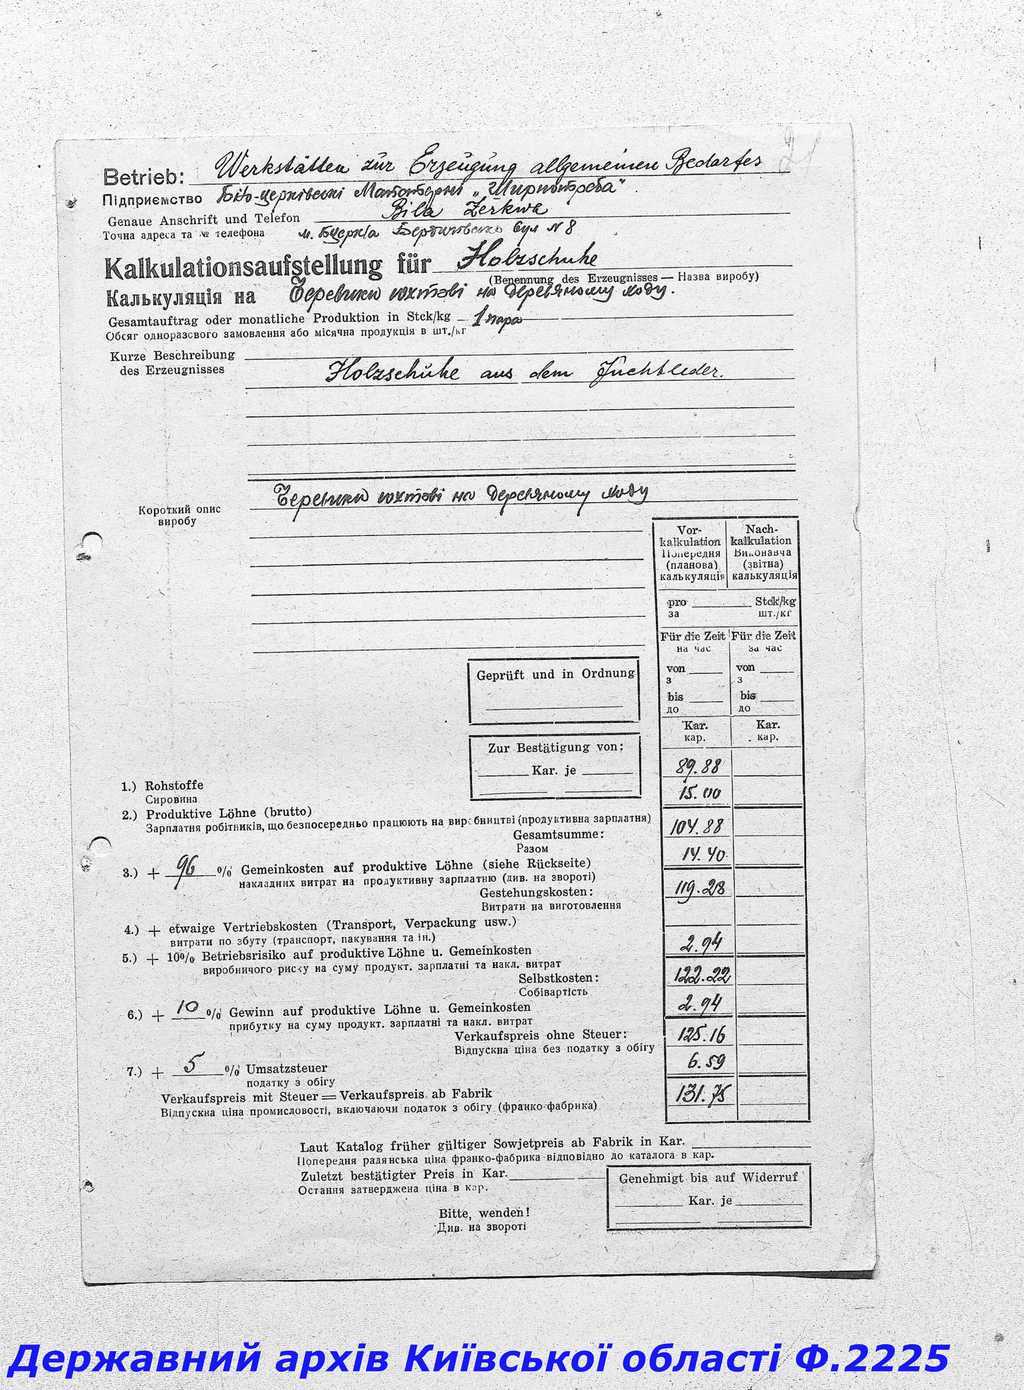 Betrieb: Werkstätten zur Erzeugung allgemeinen Bedarfes
Підприємство Біло-церківські "Ширпотреба".
Genaue Anschrift und Telefon Bila Zerkwa
Точна адреса та № телефона м. Бцерква вул N 8
Kalkulationsaufstellung für Holzschuhe
(Benennung des Erzeugnisses — Назва виробу)
Калькуляція на Черевики юхтові на деревяному ходу.
Gesamtauftrag oder monatliche Produktion in Stck/kg 1 пара
Обсяг одноразового замовлення або місячна продукція в шт./кг
Kurze Beschreibung
des Erzeugnisses
Holzschuhe aus dem Juchtleder.
Черевики юхтові на деревяному ходу
Короткий опис
виробу
Vor-
kalkulation
Попередня
(планова)
калькуляція
Nach-
kalkulation
Виконавча
(звітна)
калькуляція
pro Stck/kg
за шт./кг
Für die Zeit Für die Zeit
на час за час
von von
з з
bis bis
до до
Kar. Kar.
кар. кар.
Geprüft und in Ordnung
Zur Bestätigung von:
Kar. je
1.) Rohstoffe 89.88
Сировина
2.) Produktive Löhne (brutto) 15.00
Зарплатня робітників, що безпосередньо працюють на виробництві (продуктивна зарплатня)
Gesamtsumme: 104.88
Разом
3.) + 96 % Gemeinkosten auf produktive Löhne (siehe Rückseite) 14.40
накладних витрат на продуктивну зарплатню (див. на звороті)
Gestehungskosten: 119.28
Витрати на виготовлення
4.) + etwaige Vertriebskosten (Transport, Verpackung usw.)
витрати по збуту (транспорт, пакування та ін.)
5.) + 10% Betriebsrisiko auf produktive Löhne u. Gemeinkosten 2.94
виробничого риску на суму продукт. зарплатні та накл. витрат
Selbstkosten: 122.22
Собівартість
6.) + 10 % Gewinn auf produktive Löhne u. Gemeinkosten 2.94
прибутку на суму продукт. зарплатні та накл. витрат
Verkaufspreis ohne Steuer: 125.16
Відпускна ціна без податку з обігу
7.) + 5 % Umsatzsteuer 6.59
податку з обігу
Verkaufspreis mit Steuer = Verkaufspreis ab Fabrik 131.75
Відпускна ціна промисловості, включаючи податок з обігу (франко-фабрика)
Laut Katalog früher gültiger Sowjetpreis ab Fabrik in Kar.
Попередня радянська ціна франко-фабрика відповідно до каталога в кар.
Zuletzt bestätigter Preis in Kar.
Остання затверджена ціна в кар.
Genehmigt bis auf Widerruf
Kar. je
Bitte, wenden!
Див. на звороті
Державний архів Київської області Ф.2225